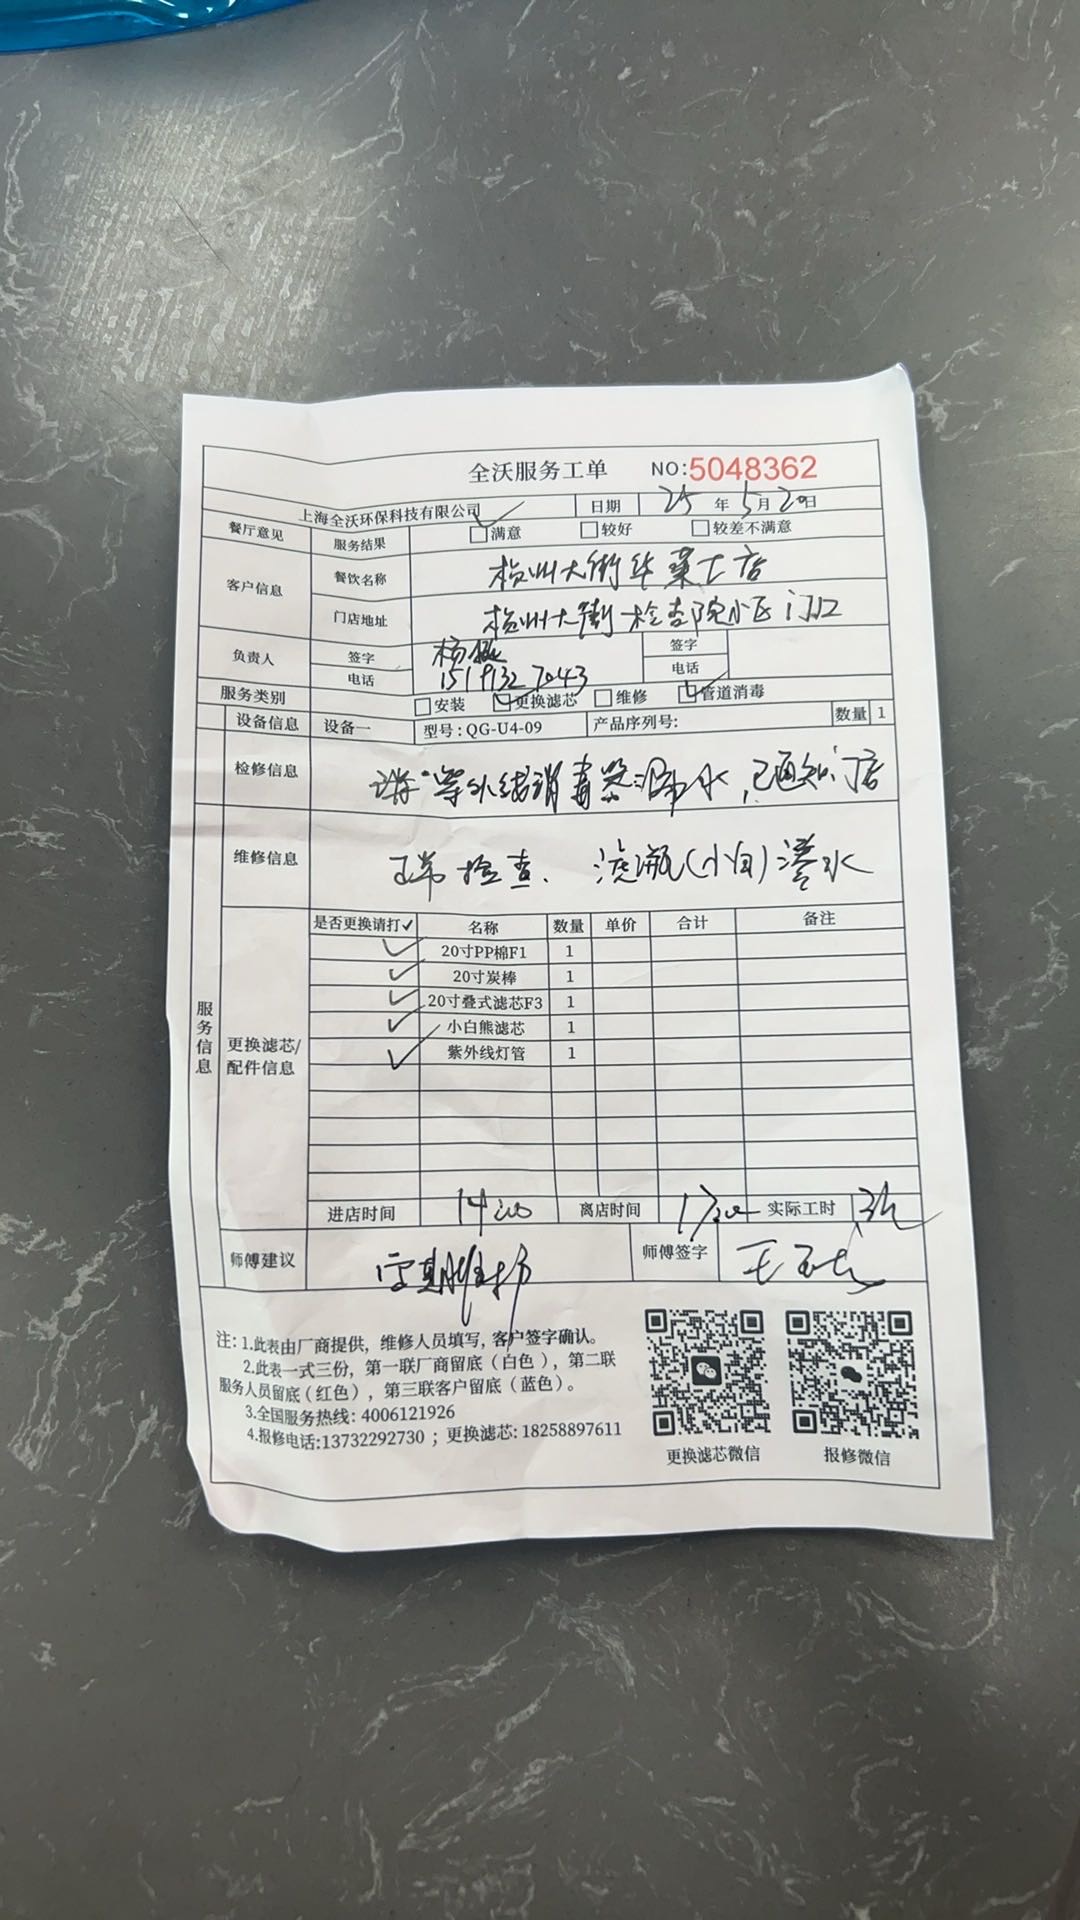 全沃服务工单 NO:5048362
上海全沃环保科技有限公司 日期 25 年 5 月 20 日
餐厅意见 服务结果 满意 较好 较差不满意
客户信息 餐饮名称 杭州大街华莱士店
门店地址 杭州大街检查院小区门口
负责人 签字 杨 签字
电话 15191327043 电话
服务类别 安装 更换滤芯 维修 管道消毒
设备信息 设备一 型号:QG-U4-09 产品序列号: 数量 1
检修信息 外线消毒器漏水,已通知门店
维修信息 正常检查. 滤瓶(小白)渗水
是否更换请打✓ 名称 数量 单价 合计 备注
✓ 20寸PP棉F1 1
✓ 20寸炭棒 1
✓ 20寸叠式滤芯F3 1
✓ 小白熊滤芯 1
✓ 紫外线灯管 1
服务信息
更换滤芯/
配件信息
进店时间 14:00 离店时间 17:00 实际工时 3h
师傅建议 定期维护 师傅签字 王
注: 1.此表由厂商提供, 维修人员填写, 客户签字确认。
2.此表一式三份, 第一联厂商留底 (白色), 第二联
服务人员留底 (红色), 第三联客户留底 (蓝色)。
3.全国服务热线: 4006121926
4.报修电话:13732292730 ; 更换滤芯: 18258897611
更换滤芯微信 报修微信